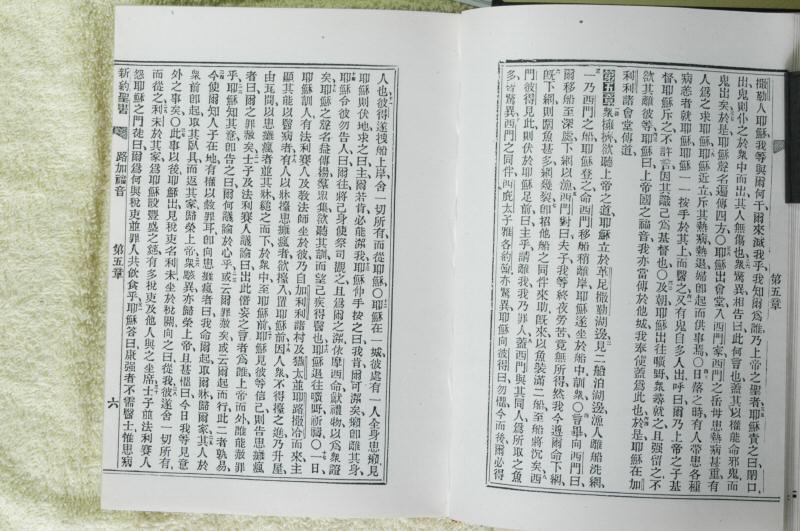 第五章
撒勒人耶穌、我等與爾何干、爾來滅我乎、我知爾爲誰、乃上帝之聖者、耶穌責之曰、閉口、
出、鬼則仆之於衆中而出、其人無傷也、衆驚異、相告曰、此何言也、蓋其以權能命邪鬼而
鬼出矣、於是耶穌聲名遍傳四方、〇耶穌出會堂、入西門家、西門之岳母患熱病甚重、有
人爲之求耶穌、耶穌近立、斥其熱病、熱退、婦卽起而供事焉、〇日落之時、有人帶患各種
病恙者就耶穌、耶穌一一按手於其上而醫之、又有鬼自多人出、呼曰、爾乃上帝之子基
督、耶穌斥之、不許言、因其識己爲基督也、〇及朝、耶穌出往曠野、衆尋就之、且强留之、不
欲其離彼等、耶穌曰、上帝國之福音、我亦當傳於他城、我奉遣蓋爲此也、於是耶穌在加
利利諸會堂傳道、
第五章 衆擁擠欲聽上帝之道、耶穌立於革尼撒勒湖邊、見二船泊湖邊、漁人離船洗網、
一乃西門之船、耶穌登之、命西門移船稍離岸、耶穌遂坐於船中訓衆、〇言畢、向西門曰、
爾移船至深處、下網以漁、西門對曰、夫子、我等終夜勞苦、竟無所得、然我今遵爾命下網、
旣下網、則圍魚甚多、網幾裂、卽招他船之同伴來助、旣來、以魚裝滿二船、至船將沉矣、西
門彼得見此、則伏於耶穌足前曰、主乎、請離我、我乃罪人、蓋西門與其同人、爲所取之魚
多、皆驚異、西門之同伴、西庇太子雅各約翰亦驚異、耶穌向彼得曰、勿懼、今而後爾必得
人也、彼得遂拽船上岸、舍一切所有、而從耶穌、〇耶穌在一城、彼處有一人全身患癩、見
耶穌、則伏地求之曰、主、爾若肯、必能潔我、耶穌伸手按之曰、我肯、爾可潔矣、癩卽離其身、
耶穌令彼勿告人、曰、爾往將己身使祭司觀之、且爲爾之潔、依摩西命、獻禮物、以爲衆證
矣、耶穌之聲名益傳揚、羣衆集、欲聽其訓、而望己疾得醫也、耶穌退往曠野祈禱、〇一日、
耶穌訓人、有法利賽人及敎法師坐於彼、乃自加利利諸村及猶太並耶路撒冷而來、主
顯其能以醫病者、有人以牀擡患癱瘋者、欲擡入置耶穌前、因人衆不得擡之進、乃升屋、
由瓦間以患癱瘋者並其牀縋之而下、於衆中至耶穌前、耶穌見彼等信己、則告患癱瘋
者曰、爾之罪赦矣、士子及法利賽人議論曰、出此僭妄之言者爲誰、上帝而外、誰能赦罪
乎、耶穌知其意、卽告之曰、爾何議論於心乎、或云爾罪赦矣、或云爾起而行、此二者孰易、
今使爾知人子在地有權以赦罪耳、卽向患癱瘋者曰、我命爾起、取爾牀歸爾家、其人於
衆前卽起、取其臥具而返其家、歸榮上帝、衆駭異、亦歸榮上帝、且甚懼、曰、今日我等見意
外之事矣、〇此事以後、耶穌出、見稅吏名利未坐於稅關、向之曰、從我、彼遂舍一切所有、
而從之、利未於其家爲耶穌設豐盛之筵、有多稅吏及他人與之坐席、士子並法利賽人
怨耶穌之門徒曰、爾何與稅吏並罪人共飮食乎、耶穌答曰、康强者不需醫士、惟患病
新約聖書 路加福音 第五章 六